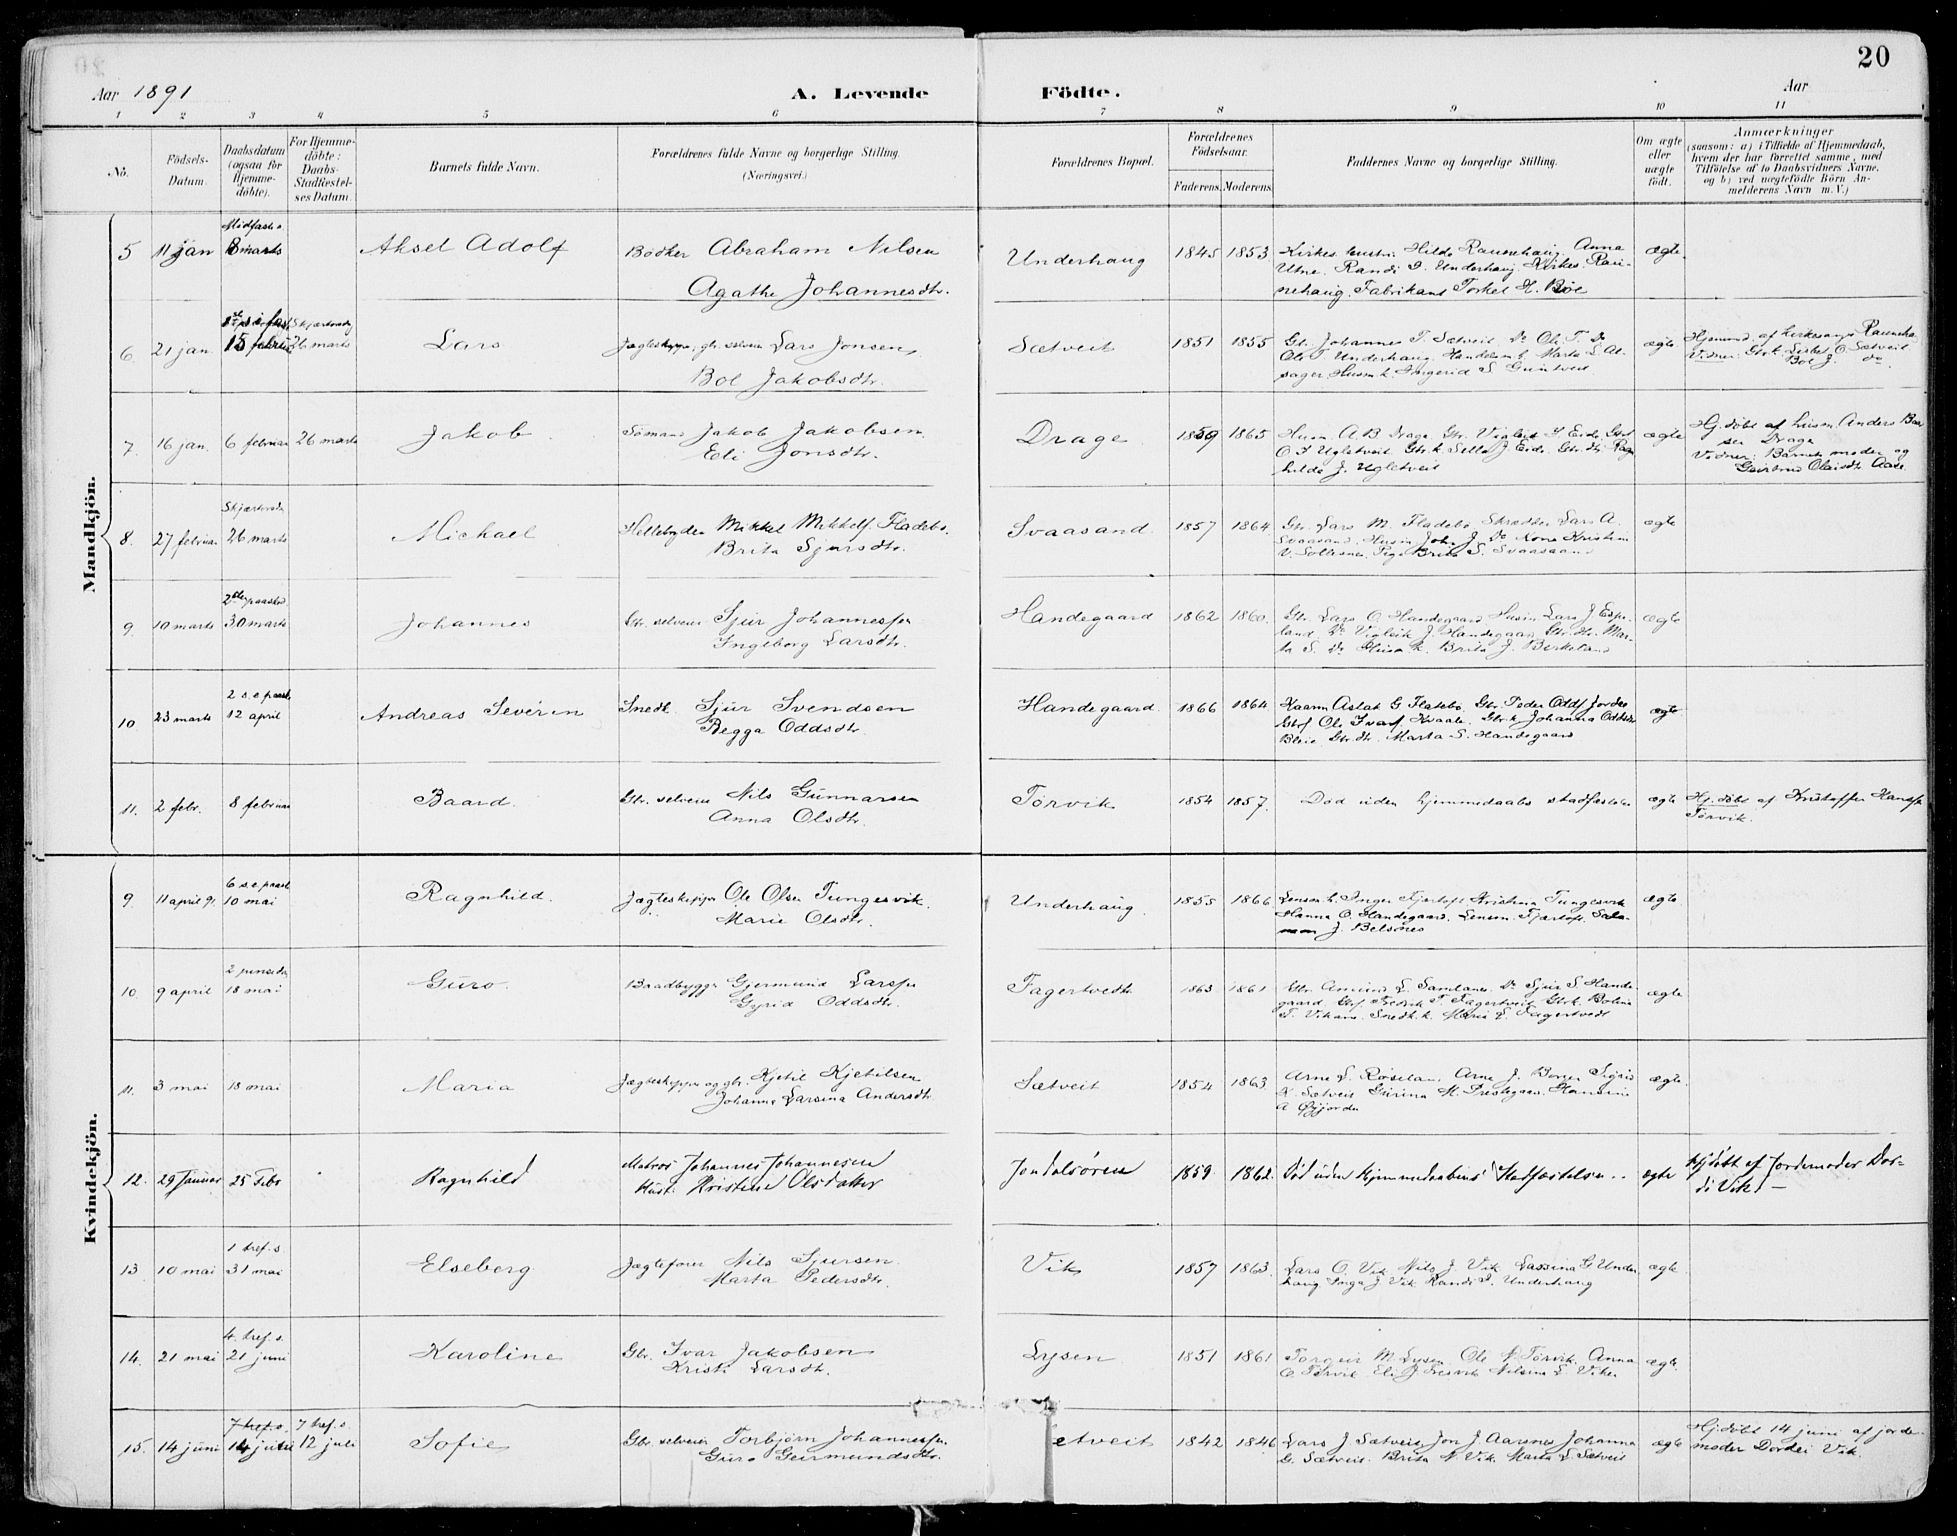 20
Aar 1891 A. Levende Födte. Aar
1 2 3 4 5 6 7 8 9 10 11
No.
Födsels-Datum.
Daabsdatum (ogsaa for Hjemme-döbte).
For Hjemme-döbte: Daabs-Stadfæstel-ses Datum.
Barnets fulde Navn.
Forældrenes fulde Navne og borgerlige Stilling. (Næringsvei.)
Forældrenes Bopæl.
Forældrenes Födselsaar.
Faderens. Moderens.
Faddernes Navne og borgerlige Stilling.
Om ægte eller uægte födt.
Anmærkninger (saasom: a) i Tilfælde af Hjemmedaab, hvem der har forrettet samme, med Tilföielse af to Daabsvidners Navne, og b) ved uægtefödte Börn An-melderens Navn m. V.)
Mandkjön.
5 11 jan 8 marts Aksel Adolf Bödker Abraham Nilsen
Agathe Johannesdtr. Underhaug 1845 1853
Utne. Randi I. Underhaug Kirkes. Rau-
nehaug. Fabrikant Torkel H. Böe ægte.
6. 21 jan. 15 februar Skjærtorsdag 26 marts Lars Lars Jonsen
Bol Jakobsdtr. Sætveit 1851 1855 Gbr. Johannes T. Sætveit. Do Ole T. Do
Ole T. Underhaug. Marta L. Al-
sager. Husm.k. Ingerid S. ægte
7. 16 jan. 6 februar 26 marts Jakob Sömand Jakob Jakobsen
Eli Jonsdtr. Drage 1859 1865 Husm. A.B. Drage Gbr. Vigleik
hilda J. Ugletveit ægte Hj. döbt af husm. Anders Baar
sen Drage
Vidner: Barnets moder og
8. 27 februar Skjærtorsda 26 marts Michael Mikkel Mikkels. Fladebö.
Brita Sjursdtr. Svaasand 1857 1864 Gbr. Lars M. Fladebö. Skrædder Lars A.
Svaasand. Husm. John J. Do Kone Kristin
Pige Brita S. Svaasand ægte
9. 10 marts 2den paaskd 30 marts Johannes Gbr. selveier Sjur Johannessen
Ingeborg Larsdtr. Handegaard 1862 1860. Gbr. Lars O. Handegaard Husm Lars J Espe-
land. Do Vigleik J. Handegaard. Gbr.dtr. Mar-
ta S. Do Husm.k. Brita J. Birkeland ægte
10 23 marts 2 s.e. paaske 12 april Andreas Severin Snedk. Sjur Svendsen
Begga Oddsdtr. Handegaard. 1866 1864. Aslak G Flatebö. Gbr. Peder
Gbrs. Ole Ivars. Kvaale. Gbr.k. Johanna Oddsdtr
Bleie. Gbr.dtr. Marta S. Handegaard ægte.
11. 2 febr. 8 februar Baard. Gbr. selveier Nils Gunnarsen
Anna Olsdtr. Törvik 1854 1857. Död uden hjemmedaabs stadfæstelse ægte Hj. döbt af Kristoffer Hansen
Törvik.
Kvindekjön.
9. 11 april 91. 6 s.e. paask 10 mai Ragnhild. Jægteskipper Ole Olsen Tungesvik.
Marie Olsdtr. Underhaug. 1855 1866 Lensm.k. Inger Fjærtoft Kristina Tungesvik
Hanna O. Handegaard. Lensm. Fjærtoft. Salo-
mon J. Belsnes ægte
10. 9 april 2 pinseda 18 mai Guro. Baadbygger Gjermund Larssen
Gyrid Oddsdtr. Fagertvedt 1863 1861 Gbr. Amund L. Samland Do Sjur S. Hande-
gaard. Fredrik T. Fagertveit Gbrk. Bolina
T. Vikane. Snedk.k. Maria L. Fagertvedt ægte
11. 3 mai 18 mai Maria Jægteskipper og gbr. Kjetil Kjetilsen
Johanna Larsina Andersdtr. Sætveit 1854 1863. Arne L. Röseland Arne J. Sigrid
K. Sætveit Gurina M. Prestegaard. Hansina
A ægte.
12. 29 Januar 25 Febr Ragnhild Matros Johannes Johannesen
Hust. Kristine Olsdatter Jondalsören 1859. 1862. Död uden Hjemmedaabens Stadfæstelse .. ægte Hj döbt af Jordemoder Dor-
di Vik. –
13 10 mai 1 tref. s. 31 mai Elseberg Jægtefører Nils Sjursen.
Marta Pedersdtr. Vik 1857 1863. Lars O. Vik Nils J. Vik Larsina G Under-
haug Inga J. Vik Randi I. Underhaug ægte.
14. 21 mai 4. tref. s. 21 juni Karoline Gbr. Ivar Jakobsen
Kristi Larsdtr. Lysen 1851 1861 Torgeir M. Lysen Ole N Törvik. Anna
O. Törvik Eli J Nilsina L. Viken ægte.
15. 14 juni 7 tref. s. 14 juni 7 tref. s. 12 juli Sofie Gbr. selveier Torbjörn Johannessen
Guro Geirmundsdtr. etveit 1842 1846 Lars J Sætveit. Jon J. Aarsnes Johanna
G. Sætveit. Brita N. Vik. Marta L. Sætveit ægte Hj. döbt 14 juni af jorde-
moder Dordei Vik.